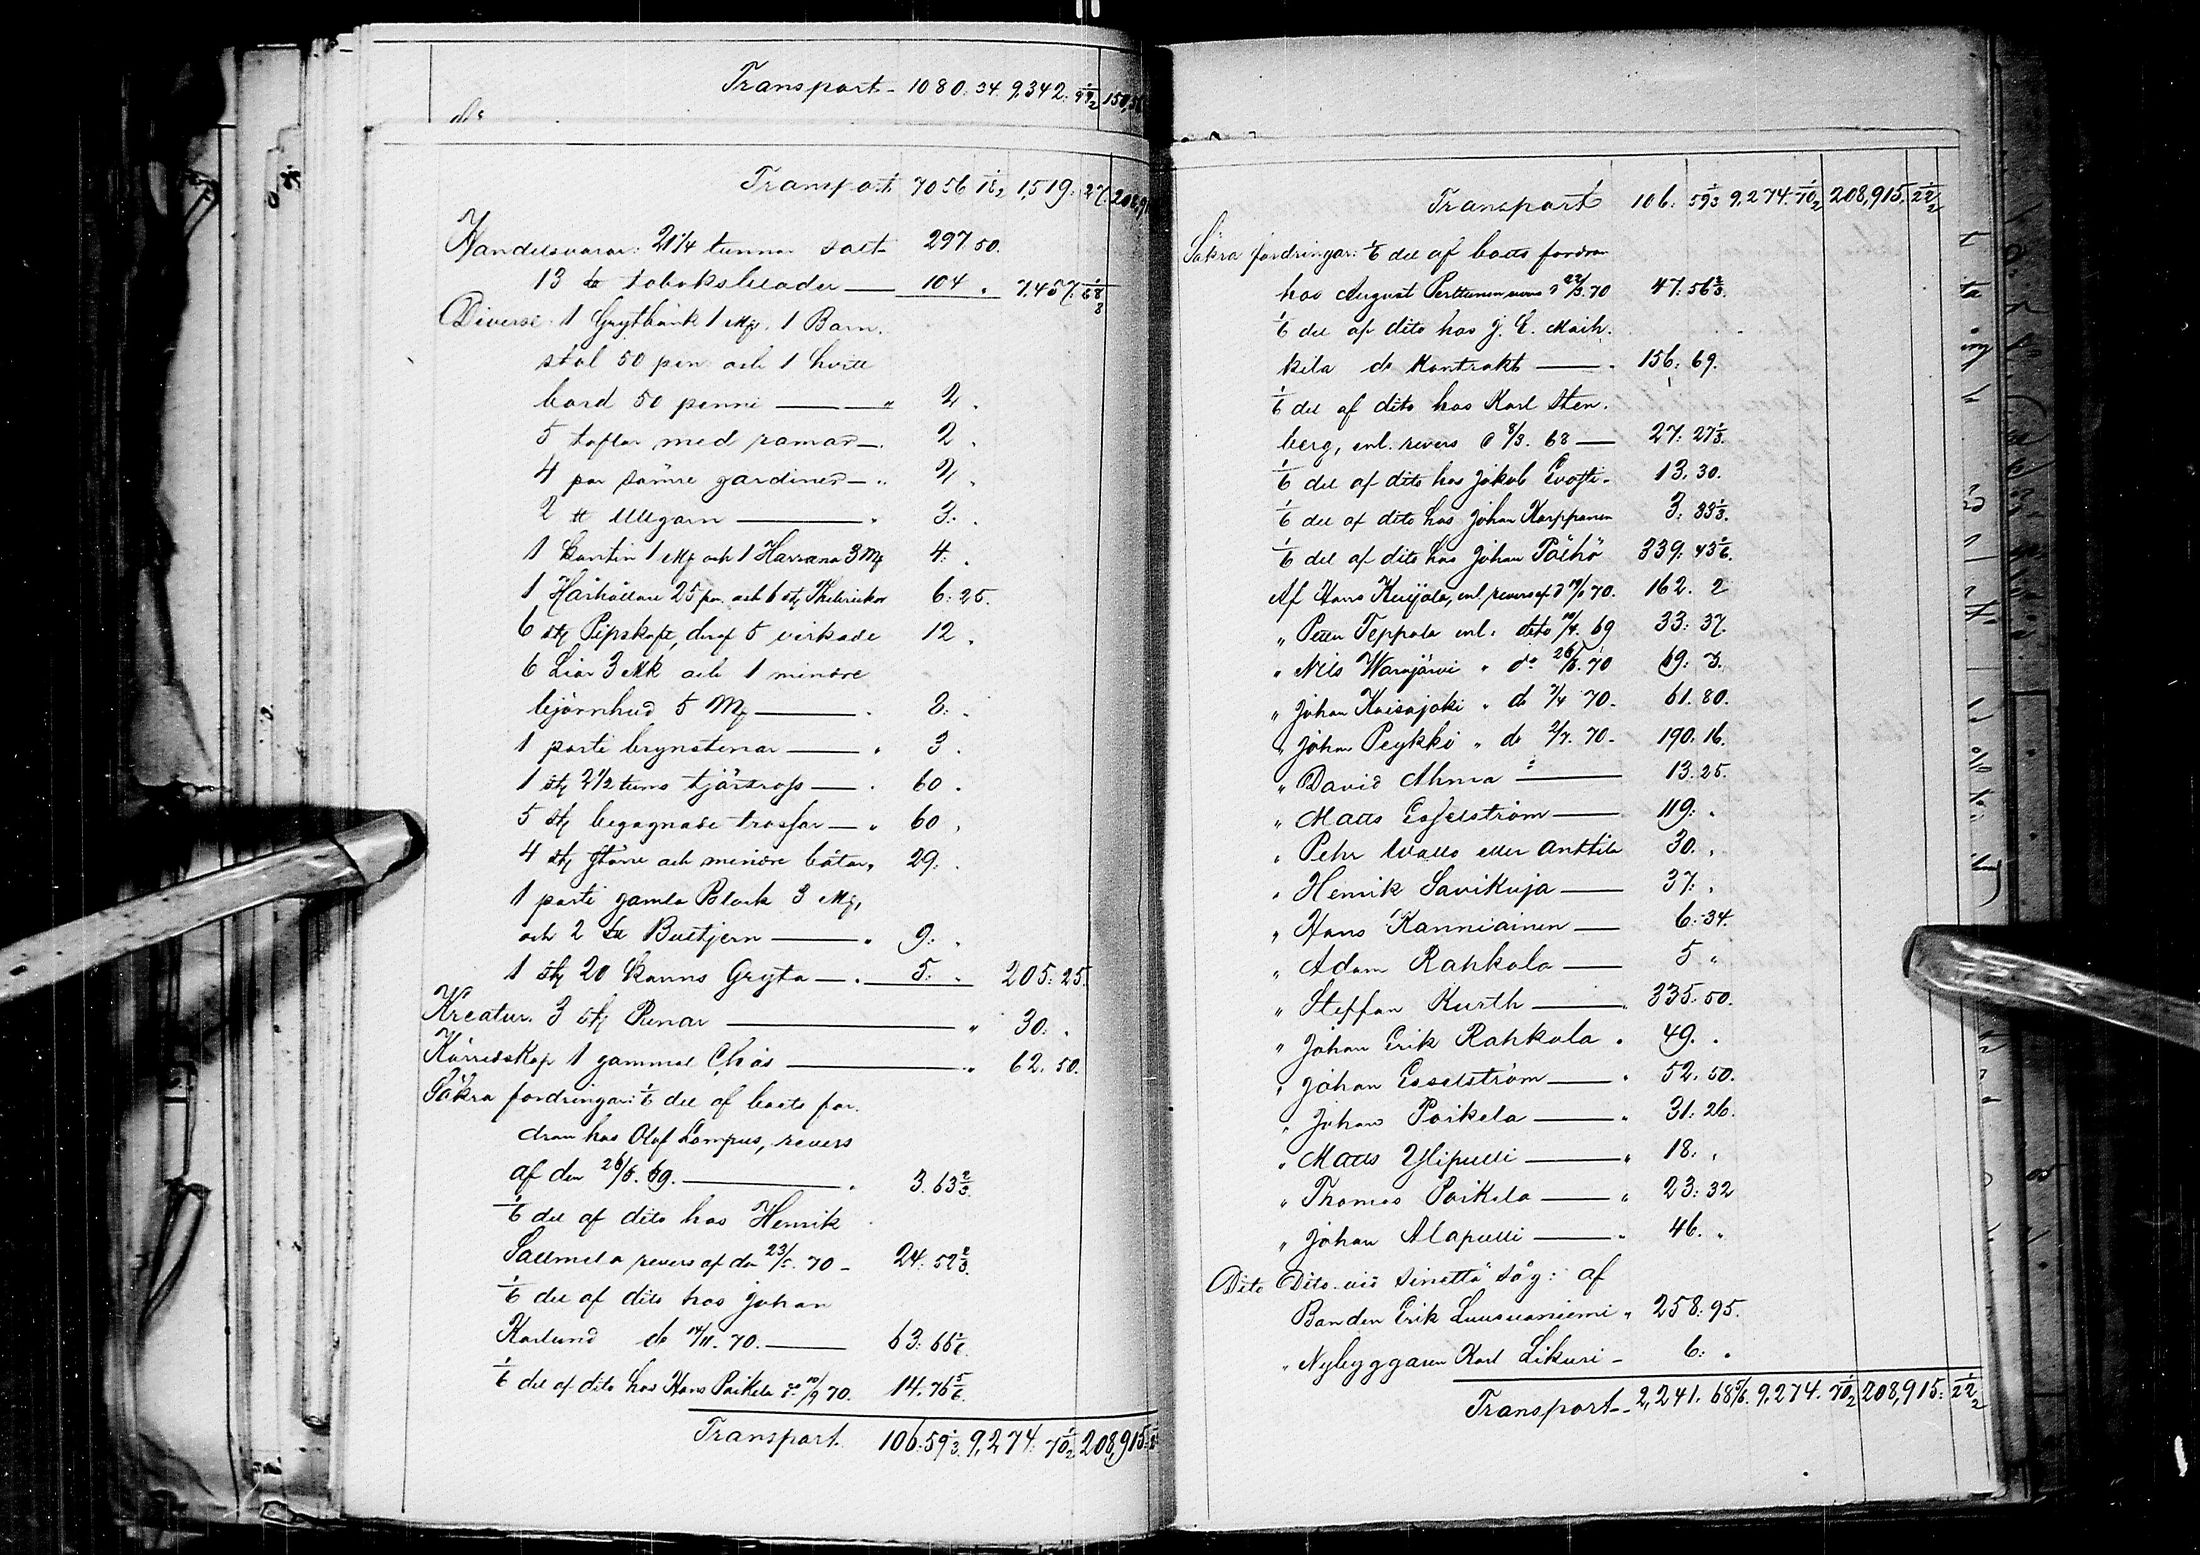 Transport - 1080. 34. 9,342. 99 1/2
Transport 7056 18 1/2 1,519. 27. 208,9
Handelsvaror: 21 1/4 tunnor salt 297. 50.
13 ℔ tobaksblader — 104 . 7,457. 68
Diverse. 1 Grytbänk 1 Mk. 1 Barn.
stol 50 pen och 1 hvitt
bord 50 penni — " 2 .
5 taflor med ramar — . 2 .
4 par sämre gardiner — " 2 .
2 ℔ Ullgarn — . 3. .
1 Kantin 1 Mk och 1 3 Mk 4: .
1 Hårhållare 25 pn. och 6 st. 6: 25.
6 st. Pipskaft, deraf 5 virkade 12 .
6 Liar 3 Mk och 1 mindre
björnhud 5 Mk — . 8: .
1 parti brynstenar — " 3 .
1 st. 2 1/2 tums tjärtross — . 60 .
5 st. begagnade trossar — " 60 .
4 st. större och mindre båtar, 29. .
1 parti gamla Block 3 Mk,
och 2 — . 9: .
1 st. 20 kanns Gryta — . 5: . 205. 25.
Kreatur. 3 st. Renar — " 30. .
Körredskap 1 gammal — . 62. 50.
Säkra fordringar: 1/6 del af boets for.
dran hos Olof Lampus, revers
af den 26/5. 69. — . 3. 63 2/3.
1/6 del af dito hos Henrik
Sallmela revers af den 23/5. 70 - 24. 52 2/3.
1/6 del af dito hos Johan
Karlund do 14/11. 70. — 63. 66 1/6.
1/6 del af dito hos Hans Paikela do 10/9 70. 14. 76 5/6.
Transport. 106. 59 1/3. 9,274. 70 1/2 208,915.
Transport 106. 59 1/3 9,274. 70 1/2 208,915. 22 1/2
Säkra fordringar: 1/6 del af boets fordran
hos August Perttunen revers d 22/3. 70 47. 56 2/3.
1/6 del af dito hos J. E. Maih.
kila do Kontrakt — . 156. 69.
1/6 del af dito hos Karl Sten.
berg, enl. revers d 8/3. 68 — 27. 27 1/3.
1/6 del af dito hos Jakob 13. 30.
1/6 del af dito hos Johan Karppanen 3. 33 1/3.
1/6 del af dito hos Johan Pöihö 339. 43 5/6.
Af Hans Kuijala, enl. revers af d 70. 162. 2
" Petter Teppola enl. dito 10/4. 69 33. 37.
" Nils Warajärvi " do 26/5. 70 69. 3.
" Johan Kaisajoki " do 7/4 70. 61. 80.
" Johan Peykkö " do 2/7. 70. 190. 16.
" David Ahma — 13. 25.
" Matts Esselström — 119: .
" Pehr Walls eller Anttila 30. .
" Henrik Savikuja — 37: .
" Hans Kanniainen — 6: 34.
" Adam Rahkola — 5 "
" Steffan Kurth — . 335. 50.
" Johan Erik Rahkola . 49. .
" Johan Esselström — . 52. 50.
" Johan Poikela — " 31. 26.
" Matts Ylipulli — " 18. .
" Thomas Poikela — " 23. 32
" Johan Alapulli — . 46. .
Dito Dito vid Sinettä såg: af
Bonden Erik Luusuaniemi " 258. 95.
" Nybyggaren Karl Likuri - 6: .
Transport - 2,241. 68 5/6. 9,274. 70 1/2 208,915: 22 1/2